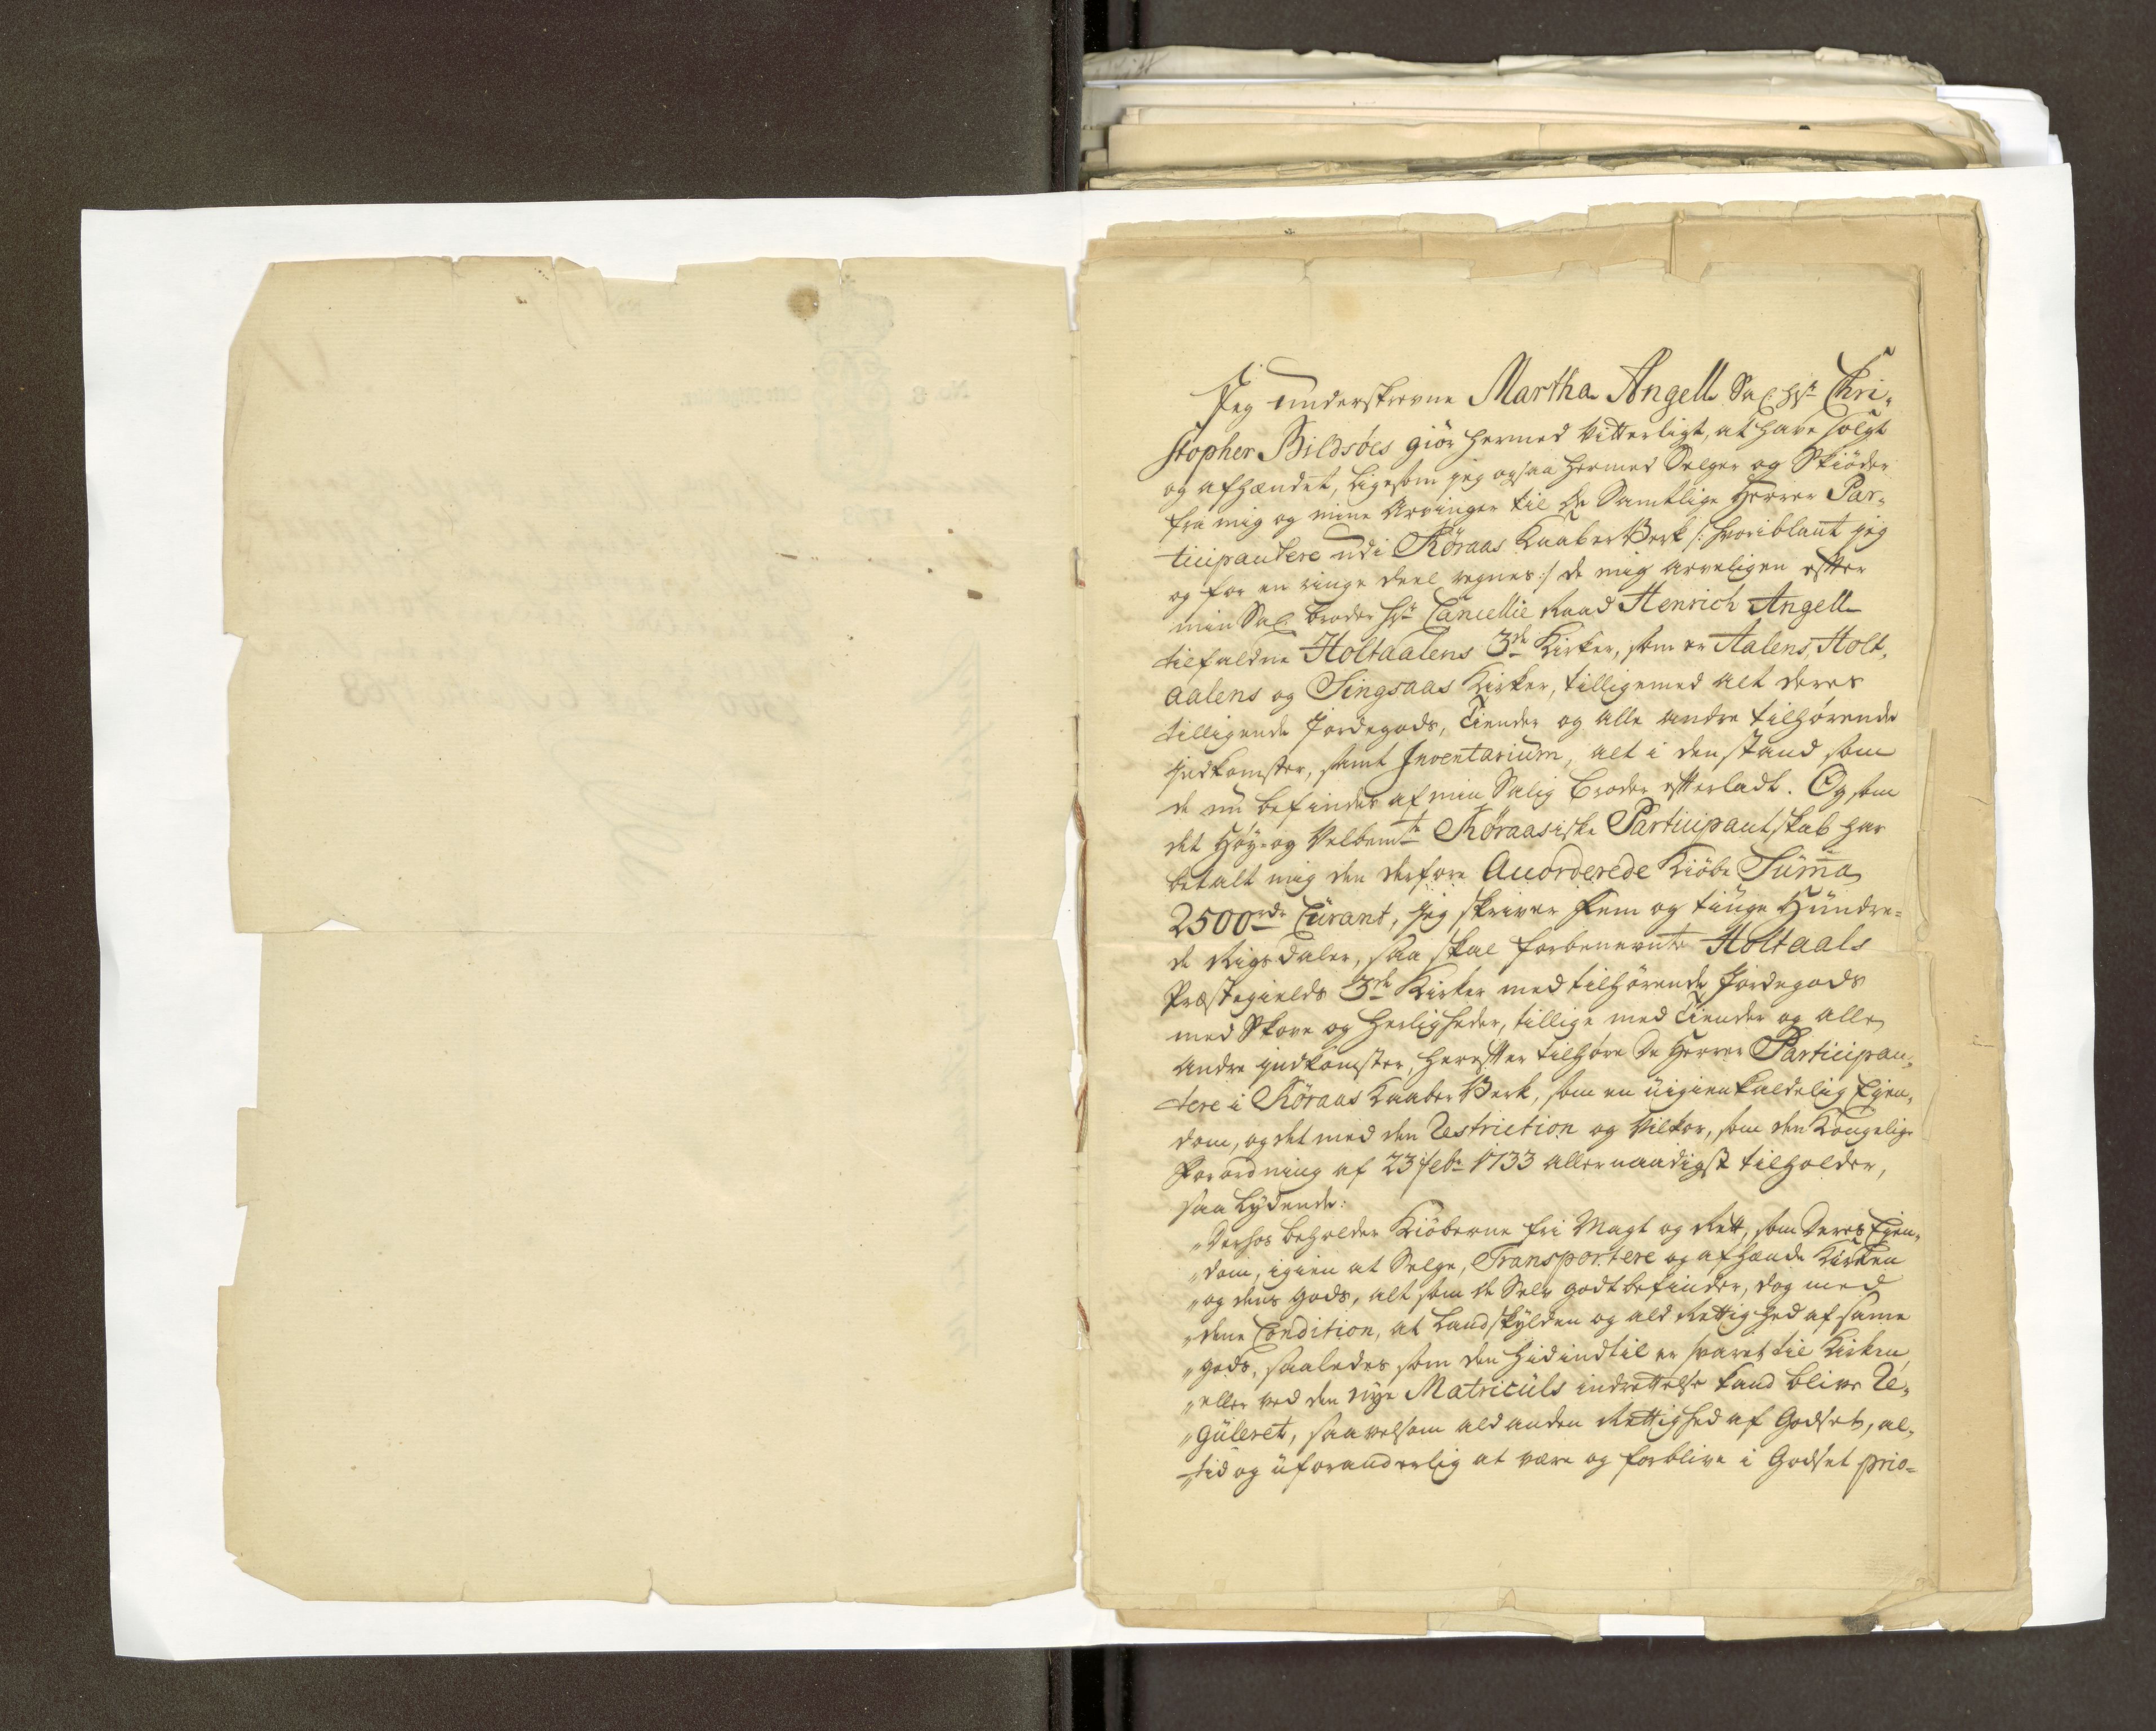 Jeg underskrevne Martha Angell Sal: Hr: Chri-
stopher Bildsøes giør hermed Vitterligt, at have solgt
og afhændet, ligesom jeg ogsaa hermed Selger og Skiøder
fra mig og mine Arvinger til de Samtlige Herrer Par-
ticipantere udi Røraas Kaaber Verk /: hvoriblant jeg
og for en ringe deel regnes :/ de mig arveligen efter
min Sal: broder Hr: Cancellie Raad Henrich Angell
tilfaldne Holtaalens 3de Kirker, som er Aalens, Holt-
aalens og Singsaas Kirker, tilligemed alt deres
tilligende Jordegods, Tiender og alle andre tilhørende
Indkomster, samt Inventarium, alt i den stand som
de nu befindes af min Salig Broder efterladt. Og som
det Høy- og Velbemte Røraasiske Participantskab har
betalt mig den derfore Accorderede Kiøbe Summa
2500rdr Curant, jeg skriver Fem og tiuge Hundre-
de Rigsdaler, saa skal forbenevnte Holtaals
Præstegields 3de Kirker med tilhørende Jordegods
med Skove og Herligheder, tillige med Tiender og alle
andre jndkomster, herefter tilhøre De Herrer Participan-
tere i Røraas Kaaber Verk, som en uigienkaldelig Eyen-
dom, og det med den Restriction og Vilkor, som den Kongelige
Forordning af 23 Febr: 1733 allernaadigst tilholder,
saa Lydende:
"Derhos beholder Kiøberne fri Magt og Rett, som Deres Eyen-
"dom, igien at Selge, Transportere og afhænde Kirken
"og dens gods, alt som de Selv godt befinder, dog med
"dene Condition, at Landskylden og ald Rettighed af same
"gods, saaledes som den hidindtil er svaret til Kirken
"eller ved den nye Matriculs indrettelse kand blive Re-
"guleret, saavelsom ald anden Rettighed af Godset, al-
"tid og uforanderlig at være og forblive i Godset prio-